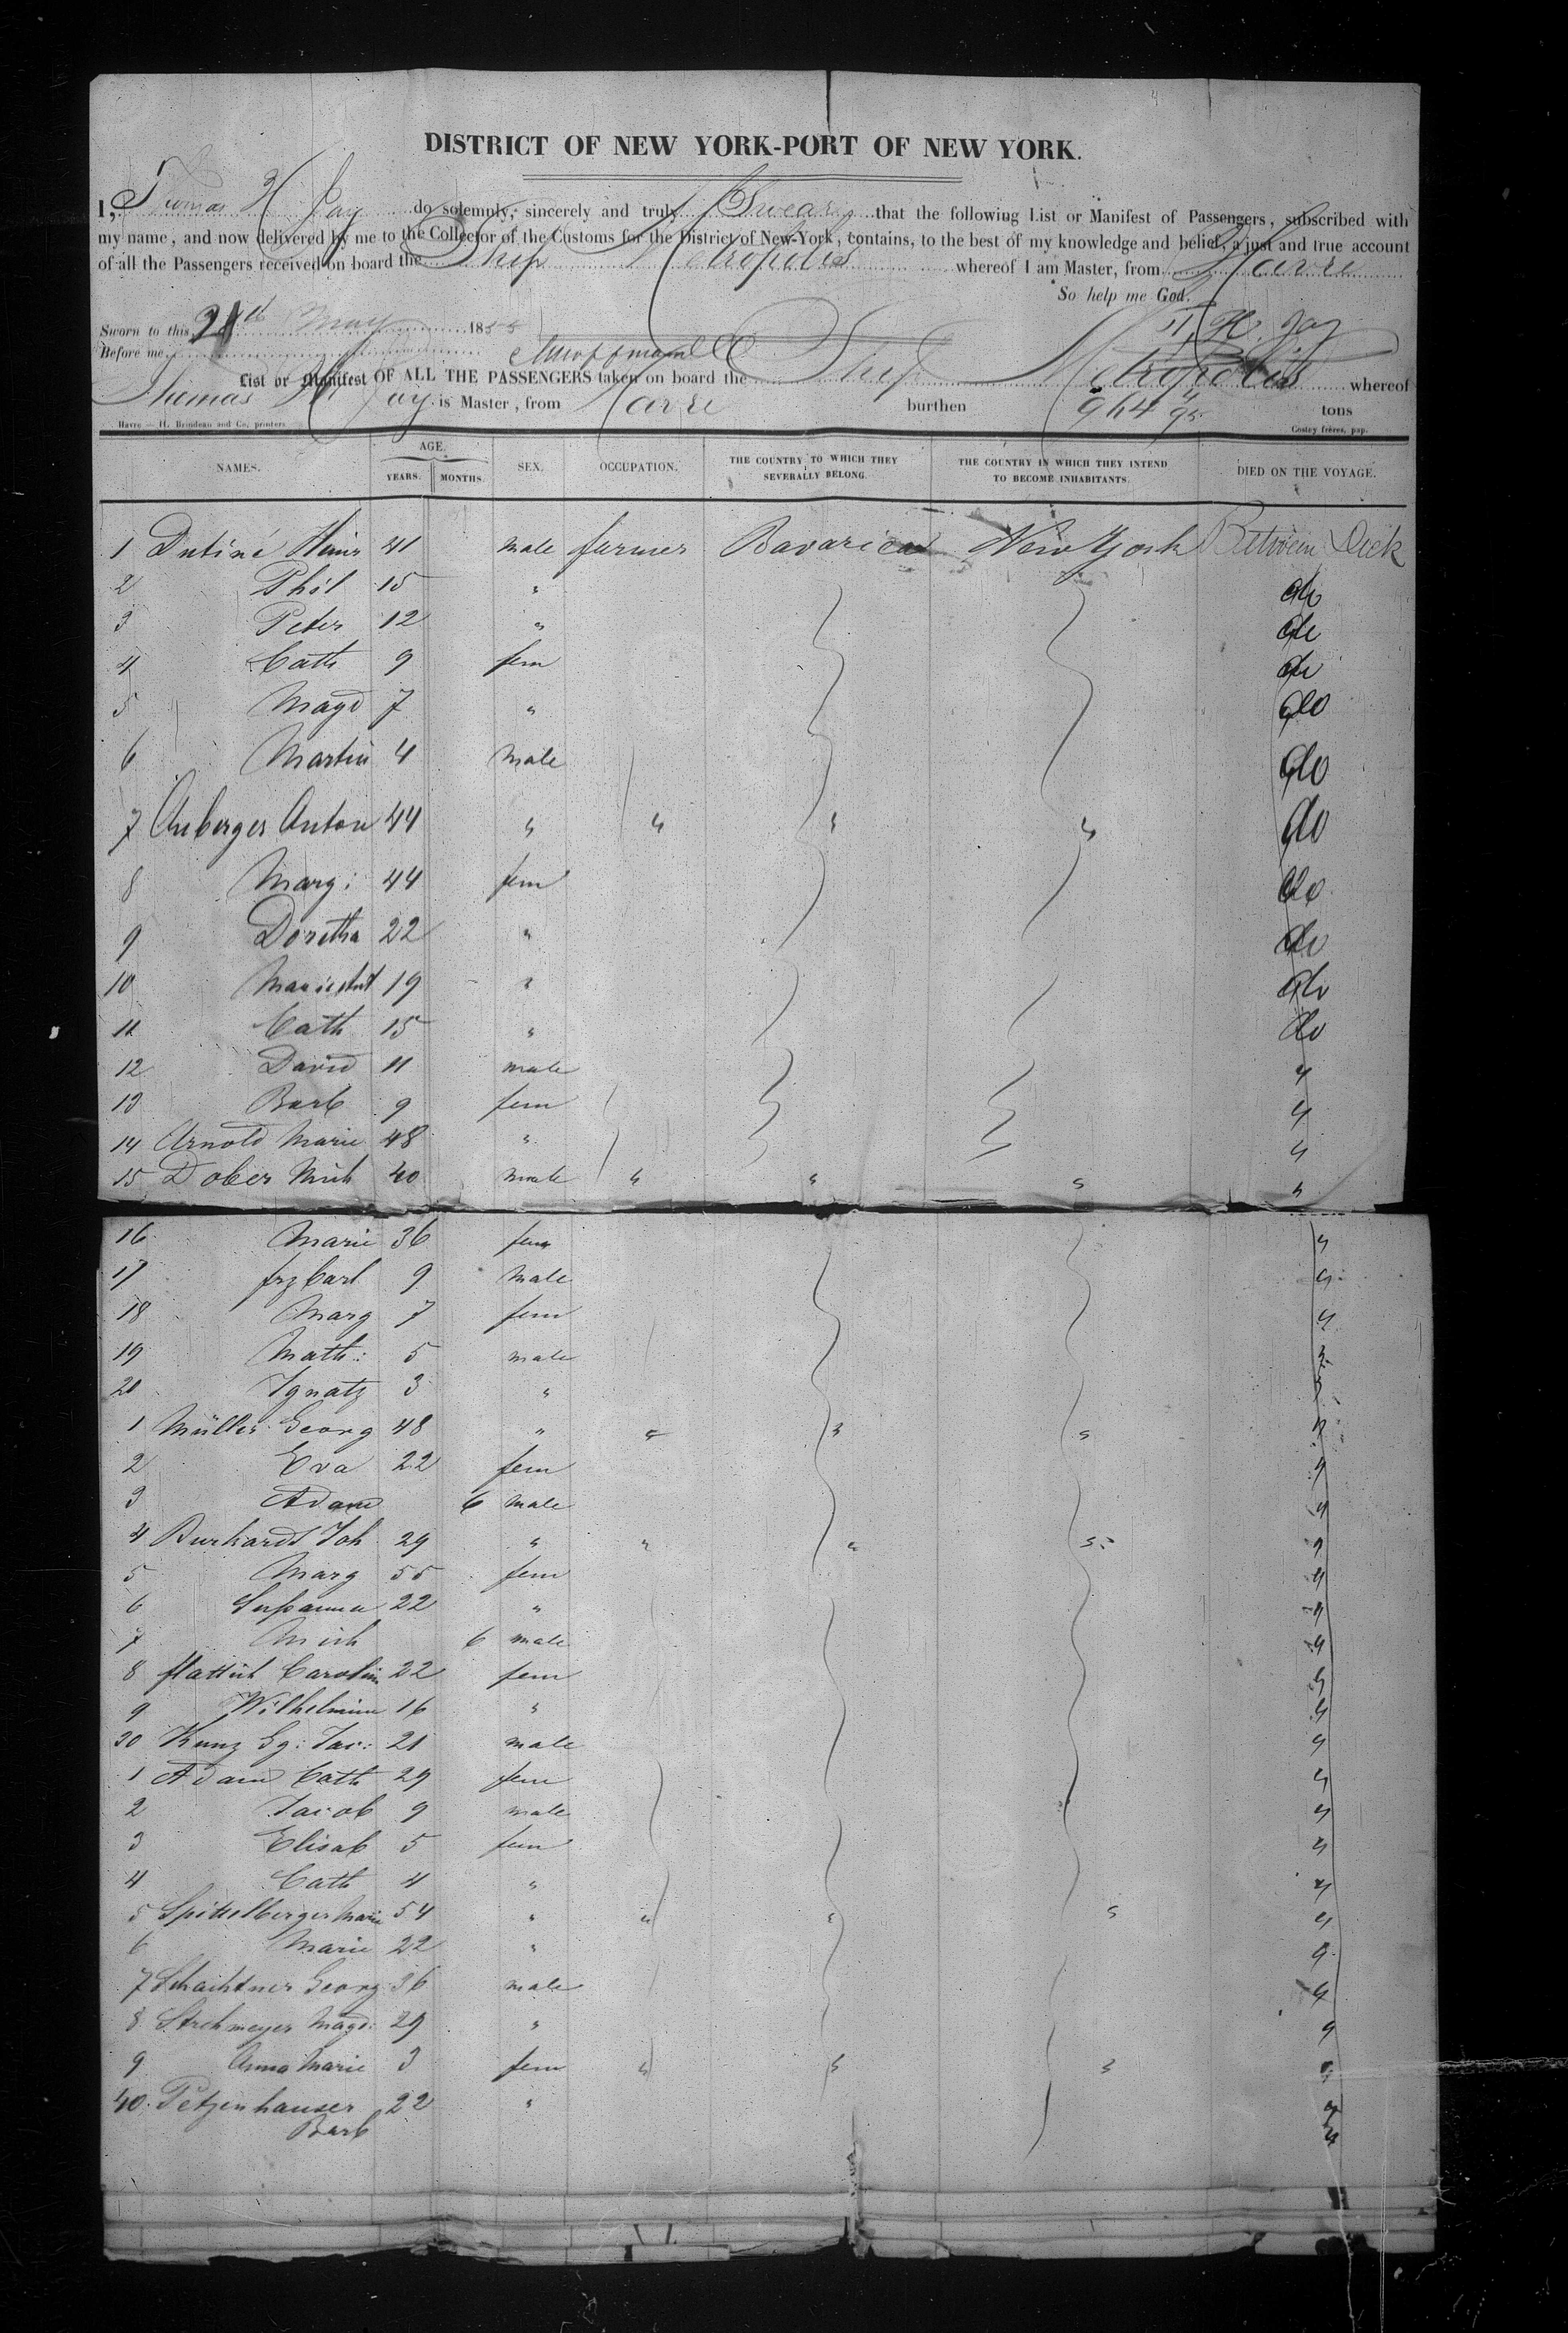 DISTRICT OF NEW YORK-PORT OF NEW YORK.
I, Thomas H Jay do solemnly, sincerely and truly Swear that the following List or Manifest of Passengers, subscribed with
my name, and now delivered by me to the Collector of the Customs for the District of New-York, contains, to the best of my knowledge and belief, a just and true account
of all the Passengers received on board the Ship Metropolis whereof I am Master, from Havre
So help me God.
Sworn to this 21st May 185
T. H. Jay
Before me
List or Manifest OF ALL THE PASSENGERS taken on board the Ship Metropolis whereof
Thomas H. Jay is Master, from Havre burthen 964 4/95 tons
Havre — H. Brindeau and Co, printers
Costey frères, pap.
NAMES. AGE. YEARS. MONTHS. SEX. OCCUPATION. THE COUNTRY TO WHICH THEY SEVERALLY BELONG. THE COUNTRY IN WHICH THEY INTEND TO BECOME INHABITANTS. DIED ON THE VOYAGE.
1 Dutiné Heinr 41 male farmer Bavarian New York Between Deck
2 Phil 15 " do
3 Peter 12 " do
4 Cath 9 fem do
5 Magd 7 " do
6 Martin 4 male do
7 Anton 44 " " " " do
8 Marg: 44 fem do
9 Doretha 22 " do
10 19 " do
11 Cath 15 " do
12 David 11 male "
13 Barb 9 fem "
14 Arnold Marie 48 " "
15 Dober Mich 40 male " " " "
16 Marie 36 fem "
17 frz Carl 9 male "
18 Marg 7 fem "
19 Math: 5 male "
20 Ignatz 3 " "
1 Müller Georg 48 " " " " "
2 Eva 22 fem "
3 Adam 6 male "
4 Burkardt Joh 29 " " " " "
5 Marg 55 fem "
6 Susanna 22 " "
7 Mich 6 male "
8 Carolin 22 fem "
9 Wilhelmine 16 " "
30 Kunz Gg: Jac: 21 male "
1 Adam Cath 29 fem "
2 Jacob 9 male "
3 Elisab 5 fem "
4 Cath 4 " "
5 Spittelberger Marie 54 " " " " "
6 Marie 22 " "
7 Schachtner Georg 36 male "
8 Strohmeyer Magd: 29 " "
9 Anna Marie 3 fem " " " "
40. Petzenhauser 22 " "
Barb "